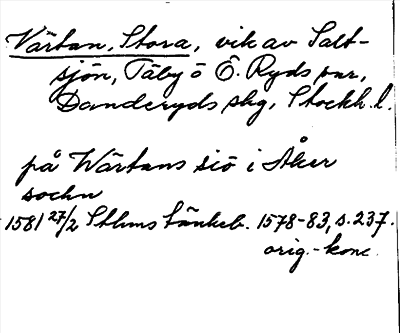 Värtan, Stora, vik av Salt-
sjön, Täby o Ö. Ryds snr,
Danderyds skg, Stockh. l.
på Wärtans siö i Åker
sochn
1581 27/2 Sthms tänkeb. 1578-83, s. 237.
orig.-konc.